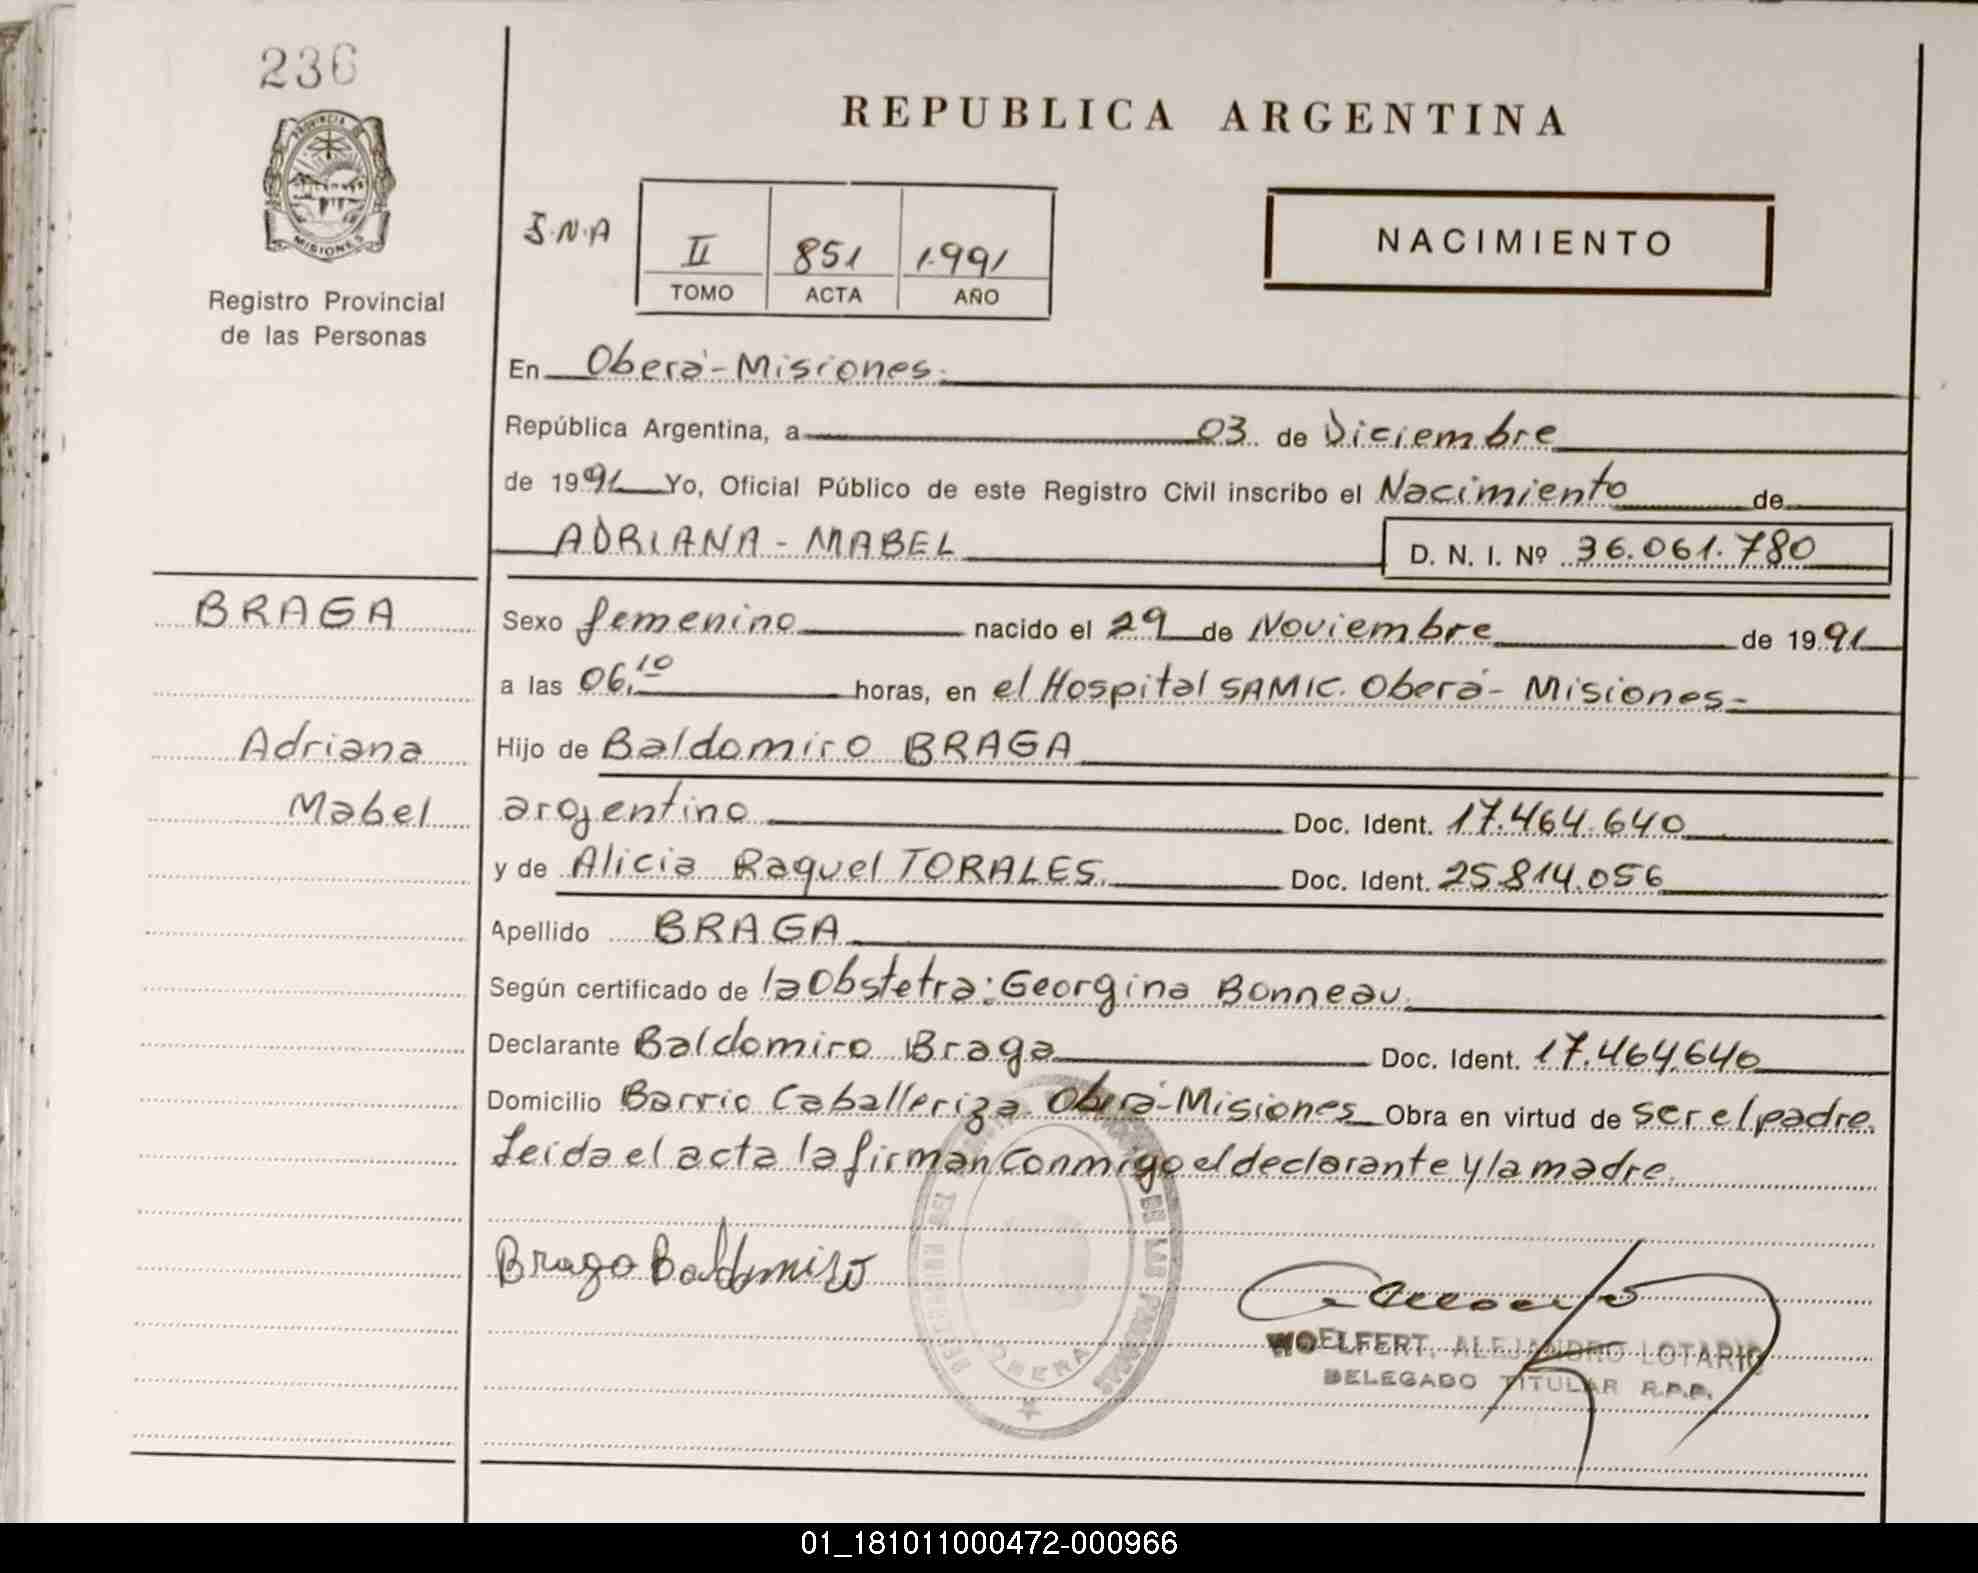 236
REPUBLICA ARGENTINA
PROVINCIA DE
MISIONES
Registro Provincial
de las Personas
II 851 1.991
TOMO ACTA AÑO
NACIMIENTO
En Oberá-Misiones.
República Argentina, a 03 de Diciembre
de 1991 Yo, Oficial Público de este Registro Civil inscribo el Nacimiento de
ADRIANA-MABEL D. N. I. Nº 36.061.780
BRAGA
Sexo femenino nacido el 29 de Noviembre de 1991
a las 06,10 horas, en el Hospital SAMIC. Oberá- Misiones-
Adriana
Hijo de Baldomiro BRAGA
Mabel
argentino Doc. Ident. 17.464.640
y de Alicia Raquel TORALES. Doc. Ident. 25.814.056
Apellido BRAGA
Según certificado de la Obstetra: Georgina Bonneau.
Declarante Baldomiro Braga Doc. Ident. 17.464.640
Domicilio Barrio Caballeriza Oberá-Misiones Obra en virtud de ser el padre.
Leida el acta la firman conmigo el declarante y la madre.
Braga Baldomiro
DE LAS PERSONAS
OBERA
WOELFERT, ALEJANDRO LOTARIO
DELEGADO TITULAR R.P.P.
01_181011000472-000966